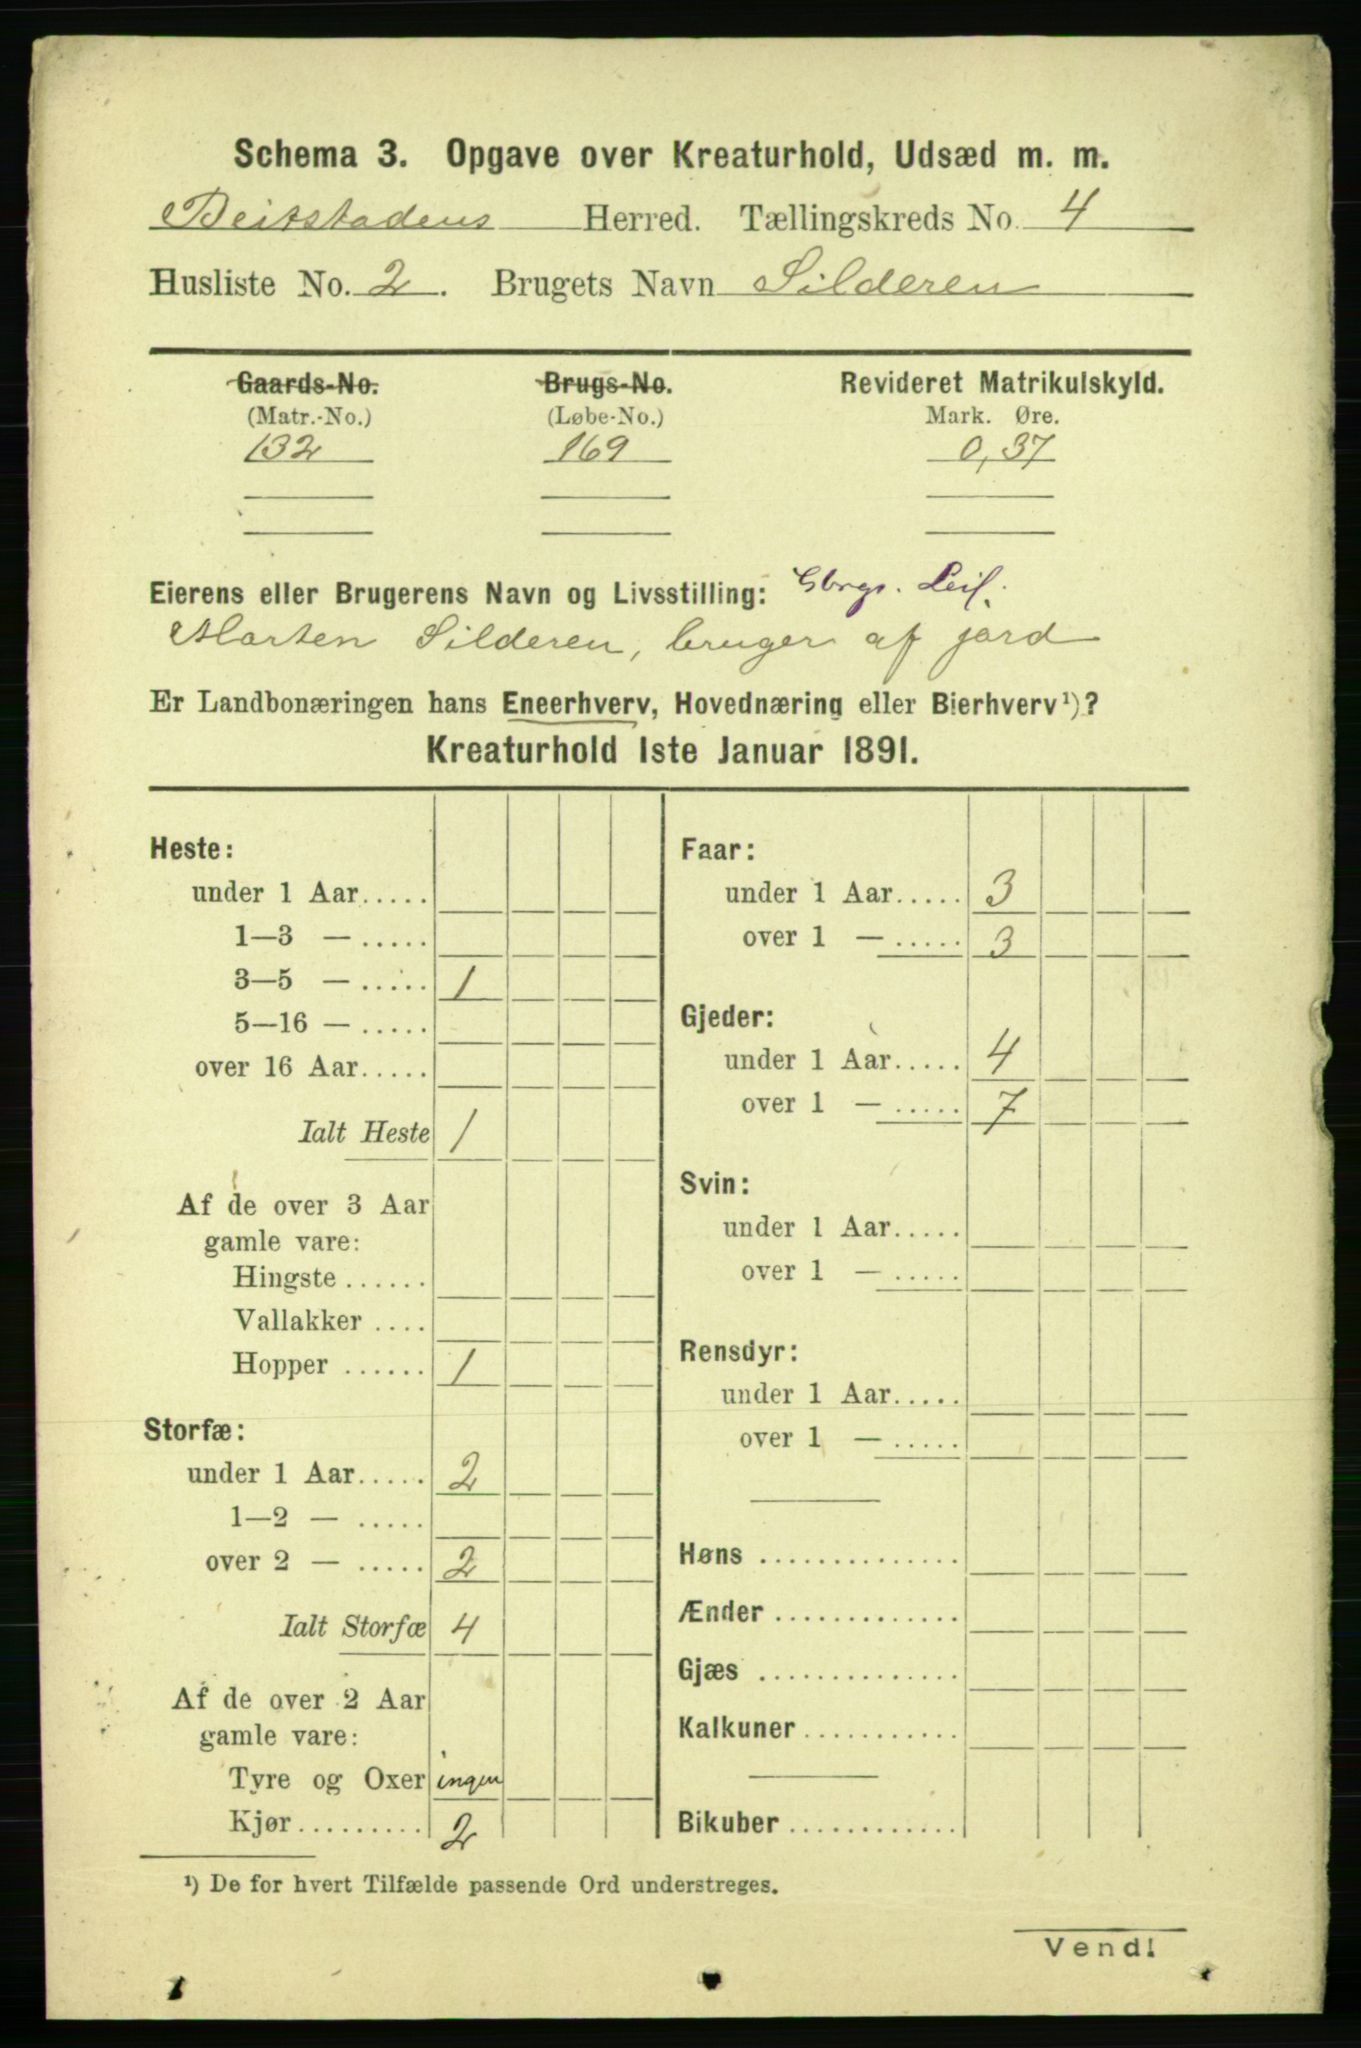 Schema 3. Opgave over Kreaturhold, Udsæd m. m.
Beitstadens Herred. Tællingskreds No. 4
Husliste No. 2. Brugets Navn Silderen
Gaards-No. Brugs-No. Revideret Matrikulskyld.
(Matr.-No.) (Løbe-No.) Mark. Øre.
132 169 0,37
Eierens eller Brugerens Navn og Livsstilling: Gbrgr. Leil.
Morten Silderen, bruger af jord
Er Landbonæringen hans Eneerhverv, Hovednæring eller Bierhverv¹)?
Kreaturhold 1ste Januar 1891.
Heste:
under 1 Aar.....
1—3 — .....
3—5 — ..... 1
5—16 — .....
over 16 Aar.....
Ialt Heste 1
Af de over 3 Aar
gamle vare:
Hingste ......
Vallakker ....
Hopper ...... 1
Storfæ:
under 1 Aar..... 2
1—2 — .....
over 2 — ..... 2
Ialt Storfæ 4
Af de over 2 Aar
gamle vare:
Tyre og Oxer ingen
Kjør......... 2
Faar:
under 1 Aar..... 3
over 1 — ..... 3
Gjeder:
under 1 Aar..... 4
over 1 — ..... 7
Svin:
under 1 Aar.....
over 1 — .....
Rensdyr:
under 1 Aar.....
over 1 — .....
Høns ..............
Ænder .............
Gjæs ..............
Kalkuner...........
Bikuber ............
¹) De for hvert Tilfælde passende Ord understreges.
Vend!